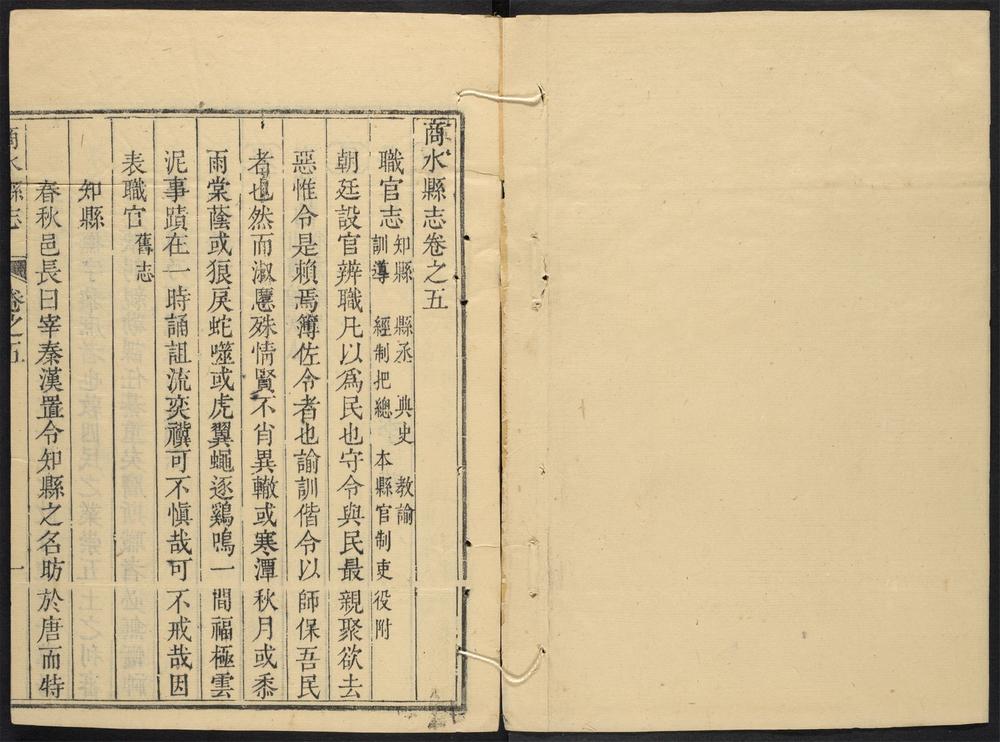 商水縣志卷之五
職官志 知縣 縣丞 典史 教諭
訓導 經制把總 本縣官制吏役附
朝廷設官辨職凡以爲民也守令與民最親聚欲去
惡惟令是賴焉簿佐令者也諭訓偕令以師保吾民
者也然而淑慝殊情賢不肖異轍或寒潭秋月或黍
雨棠蔭或狼戾蛇噬或虎翼蠅逐鷄鳴一間福極雲
泥事蹟在一時誦詛流奕禩可不愼哉可不戒哉因
表職官 舊志
知縣
春秋邑長曰宰秦漢置令知縣之名昉於唐而特
商水縣志 卷之五 一